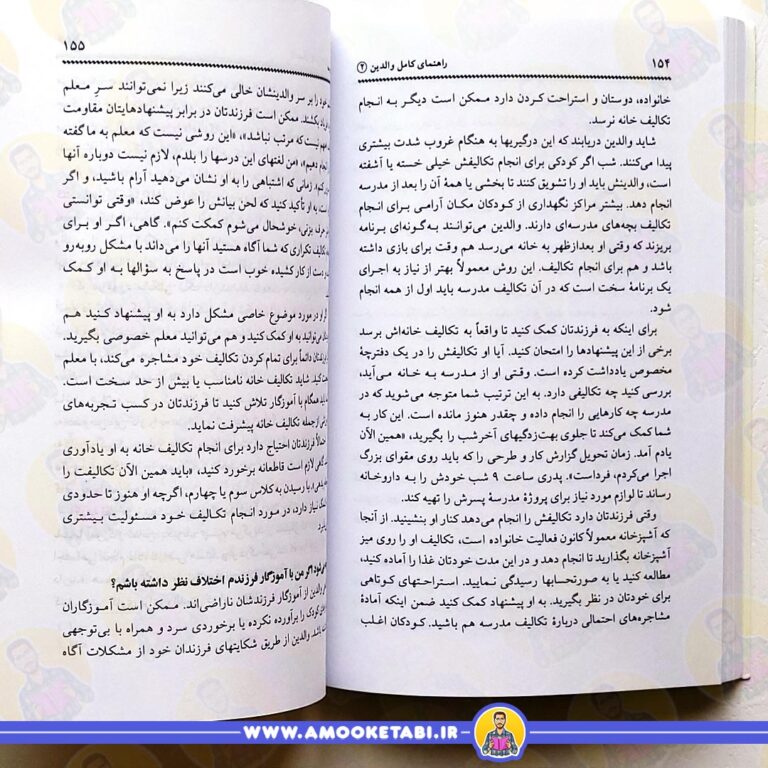 راهنمای کامل والدین (۲)
۱۵۴
خانواده، دوستان و استراحت کردن دارد ممکن است دیگر به انجام
تکالیف خانه نرسد.
شاید والدین دریابند که این درگیریها به هنگام غروب شدت بیشتری
پیدا می‌کنند. شب اگر کودکی برای انجام تکالیفش خیلی خسته یا آشفته
است، والدینش باید او را تشویق کنند تا بخشی یا همهٔ آن را بعد از مدرسه
انجام دهد. بیشتر مراکز نگهداری از کودکان مکان آرامی برای انجام
تکالیف بچه‌های مدرسه‌ای دارند. والدین می‌توانند به‌گونه‌ای برنامه
بریزند که وقتی او بعدازظهر به خانه می‌رسد هم وقت برای بازی داشته
باشد و هم برای انجام تکالیف. این روش معمولاً بهتر از نیاز به اجرای
یک برنامهٔ سخت است که در آن تکالیف مدرسه باید اول از همه انجام
شود.
برای اینکه به فرزندتان کمک کنید تا واقعاً به تکالیف خانه‌اش برسد
برخی از این پیشنهادها را امتحان کنید. آیا او تکالیفش را در یک دفترچهٔ
مخصوص یادداشت کرده است. وقتی او از مدرسه به خانه می‌آید،
بررسی کنید چه تکالیفی دارد. به این ترتیب شما متوجه می‌شوید که در
مدرسه چه کارهایی را انجام داده و چقدر هنوز مانده است. این کار به
شما کمک می‌کند تا جلوی بهت‌زدگیهای آخرشب را بگیرید، «همین الآن
یادم آمد. زمان تحویل گزارش کار و طرحی را که باید روی مقوای بزرگ
اجرا می‌کردم، فرداست». پدری ساعت ۹ شب خودش را به داروخانه
رساند تا لوازم مورد نیاز برای پروژهٔ مدرسهٔ پسرش را تهیه کند.
وقتی فرزندتان دارد تکالیفش را انجام می‌دهد کنار او بنشینید. از آنجا
که آشپزخانه معمولاً کانون فعالیت خانواده است، تکالیف او را روی میز
آشپزخانه بگذارید تا انجام دهد و در این مدت خودتان غذا را آماده کنید،
مطالعه کنید یا به صورتحسابها رسیدگی نمایید. استراحتهای کوتاهی
برای خودتان در نظر بگیرید. به او پیشنهاد کمک کنید ضمن اینکه آمادهٔ
مشاجره‌های احتمالی دربارهٔ تکالیف مدرسه هم باشید. کودکان اغلب
۱۵۵
خود را بر سر والدینشان خالی می‌کنند زیرا نمی‌توانند سرِ معلم
بکشند. ممکن است فرزندتان در برابر پیشنهادهایتان مقاومت
نیست که مرتب نباشد»، «این روشی نیست که معلم به ما گفته
انجام دهیم»، «من لغتهای این درسها را بلدم، لازم نیست دوباره آنها
زمانی که اشتباهی را به او نشان می‌دهید آرام باشید، و اگر
به او تأکید کنید که لحن بیانش را عوض کند، «وقتی توانستی
حرف بزنی، خوشحال می‌شوم کمکت کنم». گاهی، اگر او برای
تکالیف تکراری که شما آگاه هستید آنها را می‌داند با مشکل روبه‌رو
دست از کار کشیده خوب است در پاسخ به سؤالها به او کمک
او در مورد موضوع خاصی مشکل دارد به او پیشنهاد کنید هم
می‌توانید به او کمک کنید و هم می‌توانید معلم خصوصی بگیرید.
دائماً برای تمام کردن تکالیف خود مشاجره می‌کند، با معلم
کنید. شاید تکالیف خانه نامناسب یا بیش از حد سخت است.
همگام با آموزگار تلاش کنید تا فرزندتان در کسب تجربه‌های
از جمله تکالیف خانه پیشرفت نماید.
فرزندتان احتیاج دارد برای انجام تکالیف خانه به او یادآوری
گاهی لازم است قاطعانه برخورد کنید، «باید همین الآن تکالیفت را
با رسیدن به کلاس سوم یا چهارم، اگرچه او هنوز تا حدودی
نیاز دارد، در مورد انجام تکالیف خود مسئولیت بیشتری
اگر من با آموزگار فرزندم اختلاف نظر داشته باشم؟
والدین از آموزگار فرزندشان ناراضی‌اند. ممکن است آموزگاران
کودک را برآورده نکرده یا برخوردی سرد و همراه با بی‌توجهی
باشند. والدین از طریق شکایتهای فرزندان خود از مشکلات آگاه
WWW.AMOOKETABI.IR